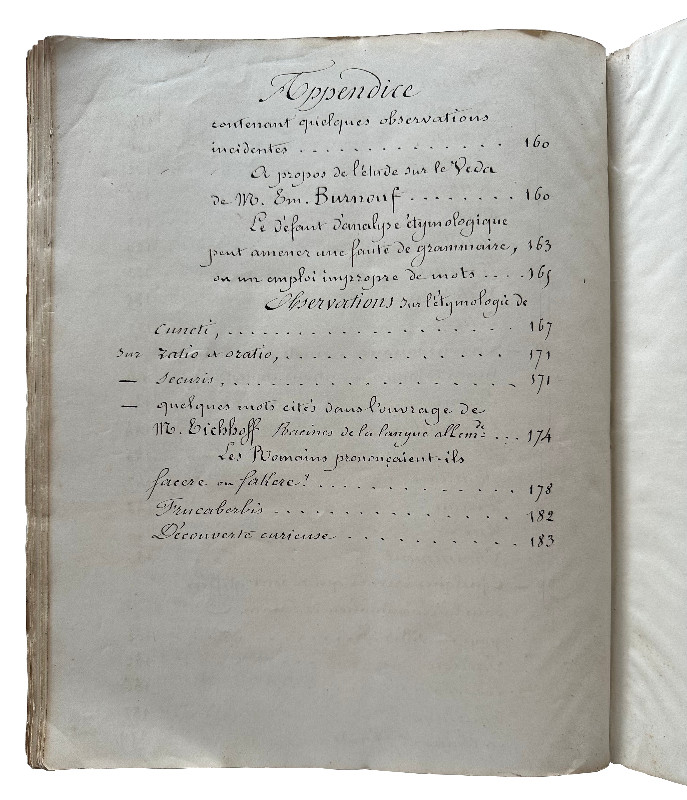 Appendice
contenant quelques observations
incidentes . . . . . . . . . . . . . 160
A propos de l'étude sur le Veda
de M. Em. Burnouf . . . . . . . . 160
Le défaut d'analyse étymologique
peut amener une faute de grammaire, 163
ou un emploi impropre de mots . . . . 165
Observations sur l'étymologie de
cuncti, . . . . . . . . . . . . . . . . . 167
Sur ratio & oratio, . . . . . . . . . . . . 171
— securis, . . . . . . . . . . . . . . . . 171
— quelques mots cités dans l'ouvrage de
M. Eichhoff Racines de la langue allemde . . . 174
Les Romains prononçaient-ils
facere ou fakere? . . . . . . . . . . . . 178
Frucaberbis . . . . . . . . . . . . . . 182
Découverte curieuse . . . . . . . . . . 183